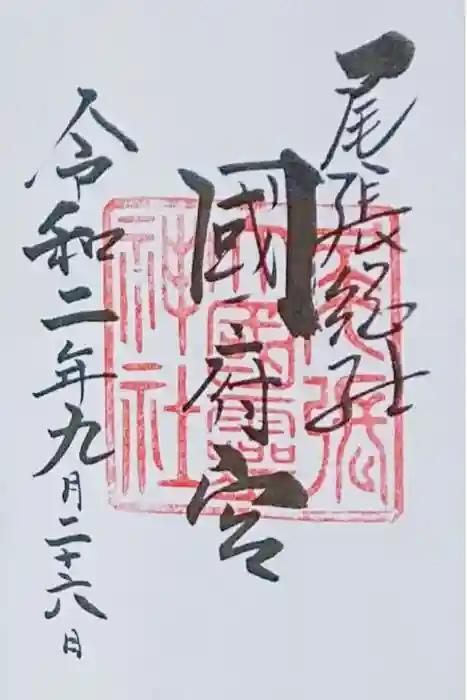 尾張総社
國府宮
令和二年九月二十六日